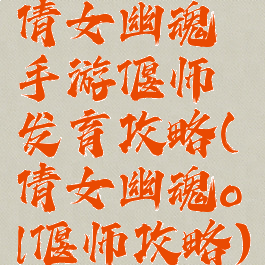 倩女幽魂
手游偃师
发育攻略(
倩女幽魂。
|偃师攻略)